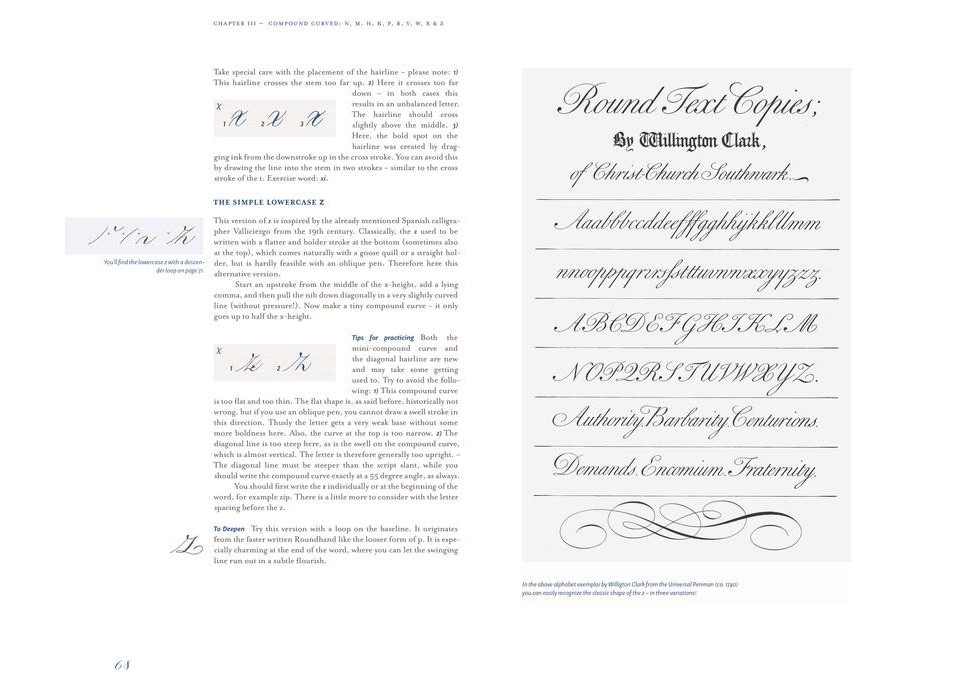 CHAPTER III – COMPOUND CURVED: N, M, H, K, P, R, V, W, X & Z
Take special care with the placement of the hairline – please note: 1)
This hairline crosses the stem too far up. 2) Here it crosses too far
down – in both cases this
results in an unbalanced letter.
The hairline should cross
slightly above the middle. 3)
Here, the bold spot on the
hairline was created by drag-
x
1 x 2 x 3 x
ging ink from the downstroke up in the cross stroke. You can avoid this
by drawing the line into the stem in two strokes – similar to the cross
stroke of the t. Exercise word: xi.
THE SIMPLE LOWERCASE Z
This version of z is inspired by the already mentioned Spanish calligra-
pher Valliciergo from the 19th century. Classically, the z used to be
written with a flatter and bolder stroke at the bottom (sometimes also
at the top), which comes naturally with a goose quill or a straight hol-
der, but is hardly feasible with an oblique pen. Therefore here this
alternative version.
You'll find the lowercase z with a descen-
der loop on page 71.
Start an upstroke from the middle of the x-height, add a lying
comma, and then pull the nib down diagonally in a very slightly curved
line (without pressure!). Now make a tiny compound curve – it only
goes up to half the x-height.
Tips for practicing Both the
mini-compound curve and
the diagonal hairline are new
and may take some getting
used to. Try to avoid the follo-
wing: 1) This compound curve
x
1 z 2 z
is too flat and too thin. The flat shape is, as said before, historically not
wrong, but if you use an oblique pen, you cannot draw a swell stroke in
this direction. Thusly the letter gets a very weak base without some
more boldness here. Also, the curve at the top is too narrow. 2) The
diagonal line is too steep here, as is the swell on the compound curve,
which is almost vertical. The letter is therefore generally too upright. –
The diagonal line must be steeper than the script slant, while you
should write the compound curve exactly at a 55 degree angle, as always.
You should first write the z individually or at the beginning of the
word, for example zip. There is a little more to consider with the letter
spacing before the z.
To Deepen Try this version with a loop on the baseline. It originates
from the faster written Roundhand like the looser form of p. It is espe-
cially charming at the end of the word, where you can let the swinging
line run out in a subtle flourish.
z
68
Round Text Copies;
By Willington Clark,
of Christ-Church Southwark.
Aaabbbccddeefffgghhijkklllmm
nnoopppqrrrsfsttttuvnwxxyyzzz.
ABCDEFGHIKLM
NOPQRSTUVWXYZ.
Authority. Barbarity. Centurions.
Demands. Encomium. Fraternity.
In the above alphabet exemplar by Willigton Clark from the Universal Penman (ca. 1740)
you can easily recognize the classic shape of the z – in three variations!